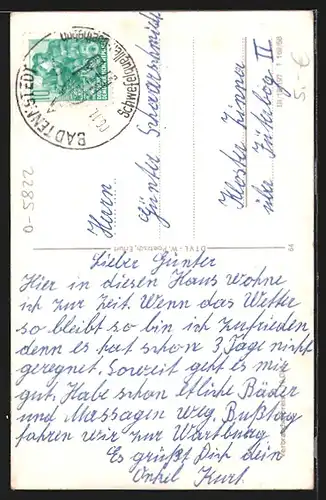 BAD TENNSTEDT
Schwefelquellen
Herrn
Günter Scharschmidt
Kloster Zinna
über Jüterbog II
5,- €
2285-0
DTVL - W. Poatzsch, Erfurt
64
Lieber Günter
Hier in diesen Haus wohne
ich zur Zeit. Wenn das Wetter
so bleibt so bin ich zufrieden
denn es hat schon 3 Tage nicht
geregnet. Soweit geht es mir
gut. Habe schon etliche Bäder
und Massagen weg. Bußtag
fahren wir zur Wartburg
Es grüßt Dich dein
Onkel Kurt